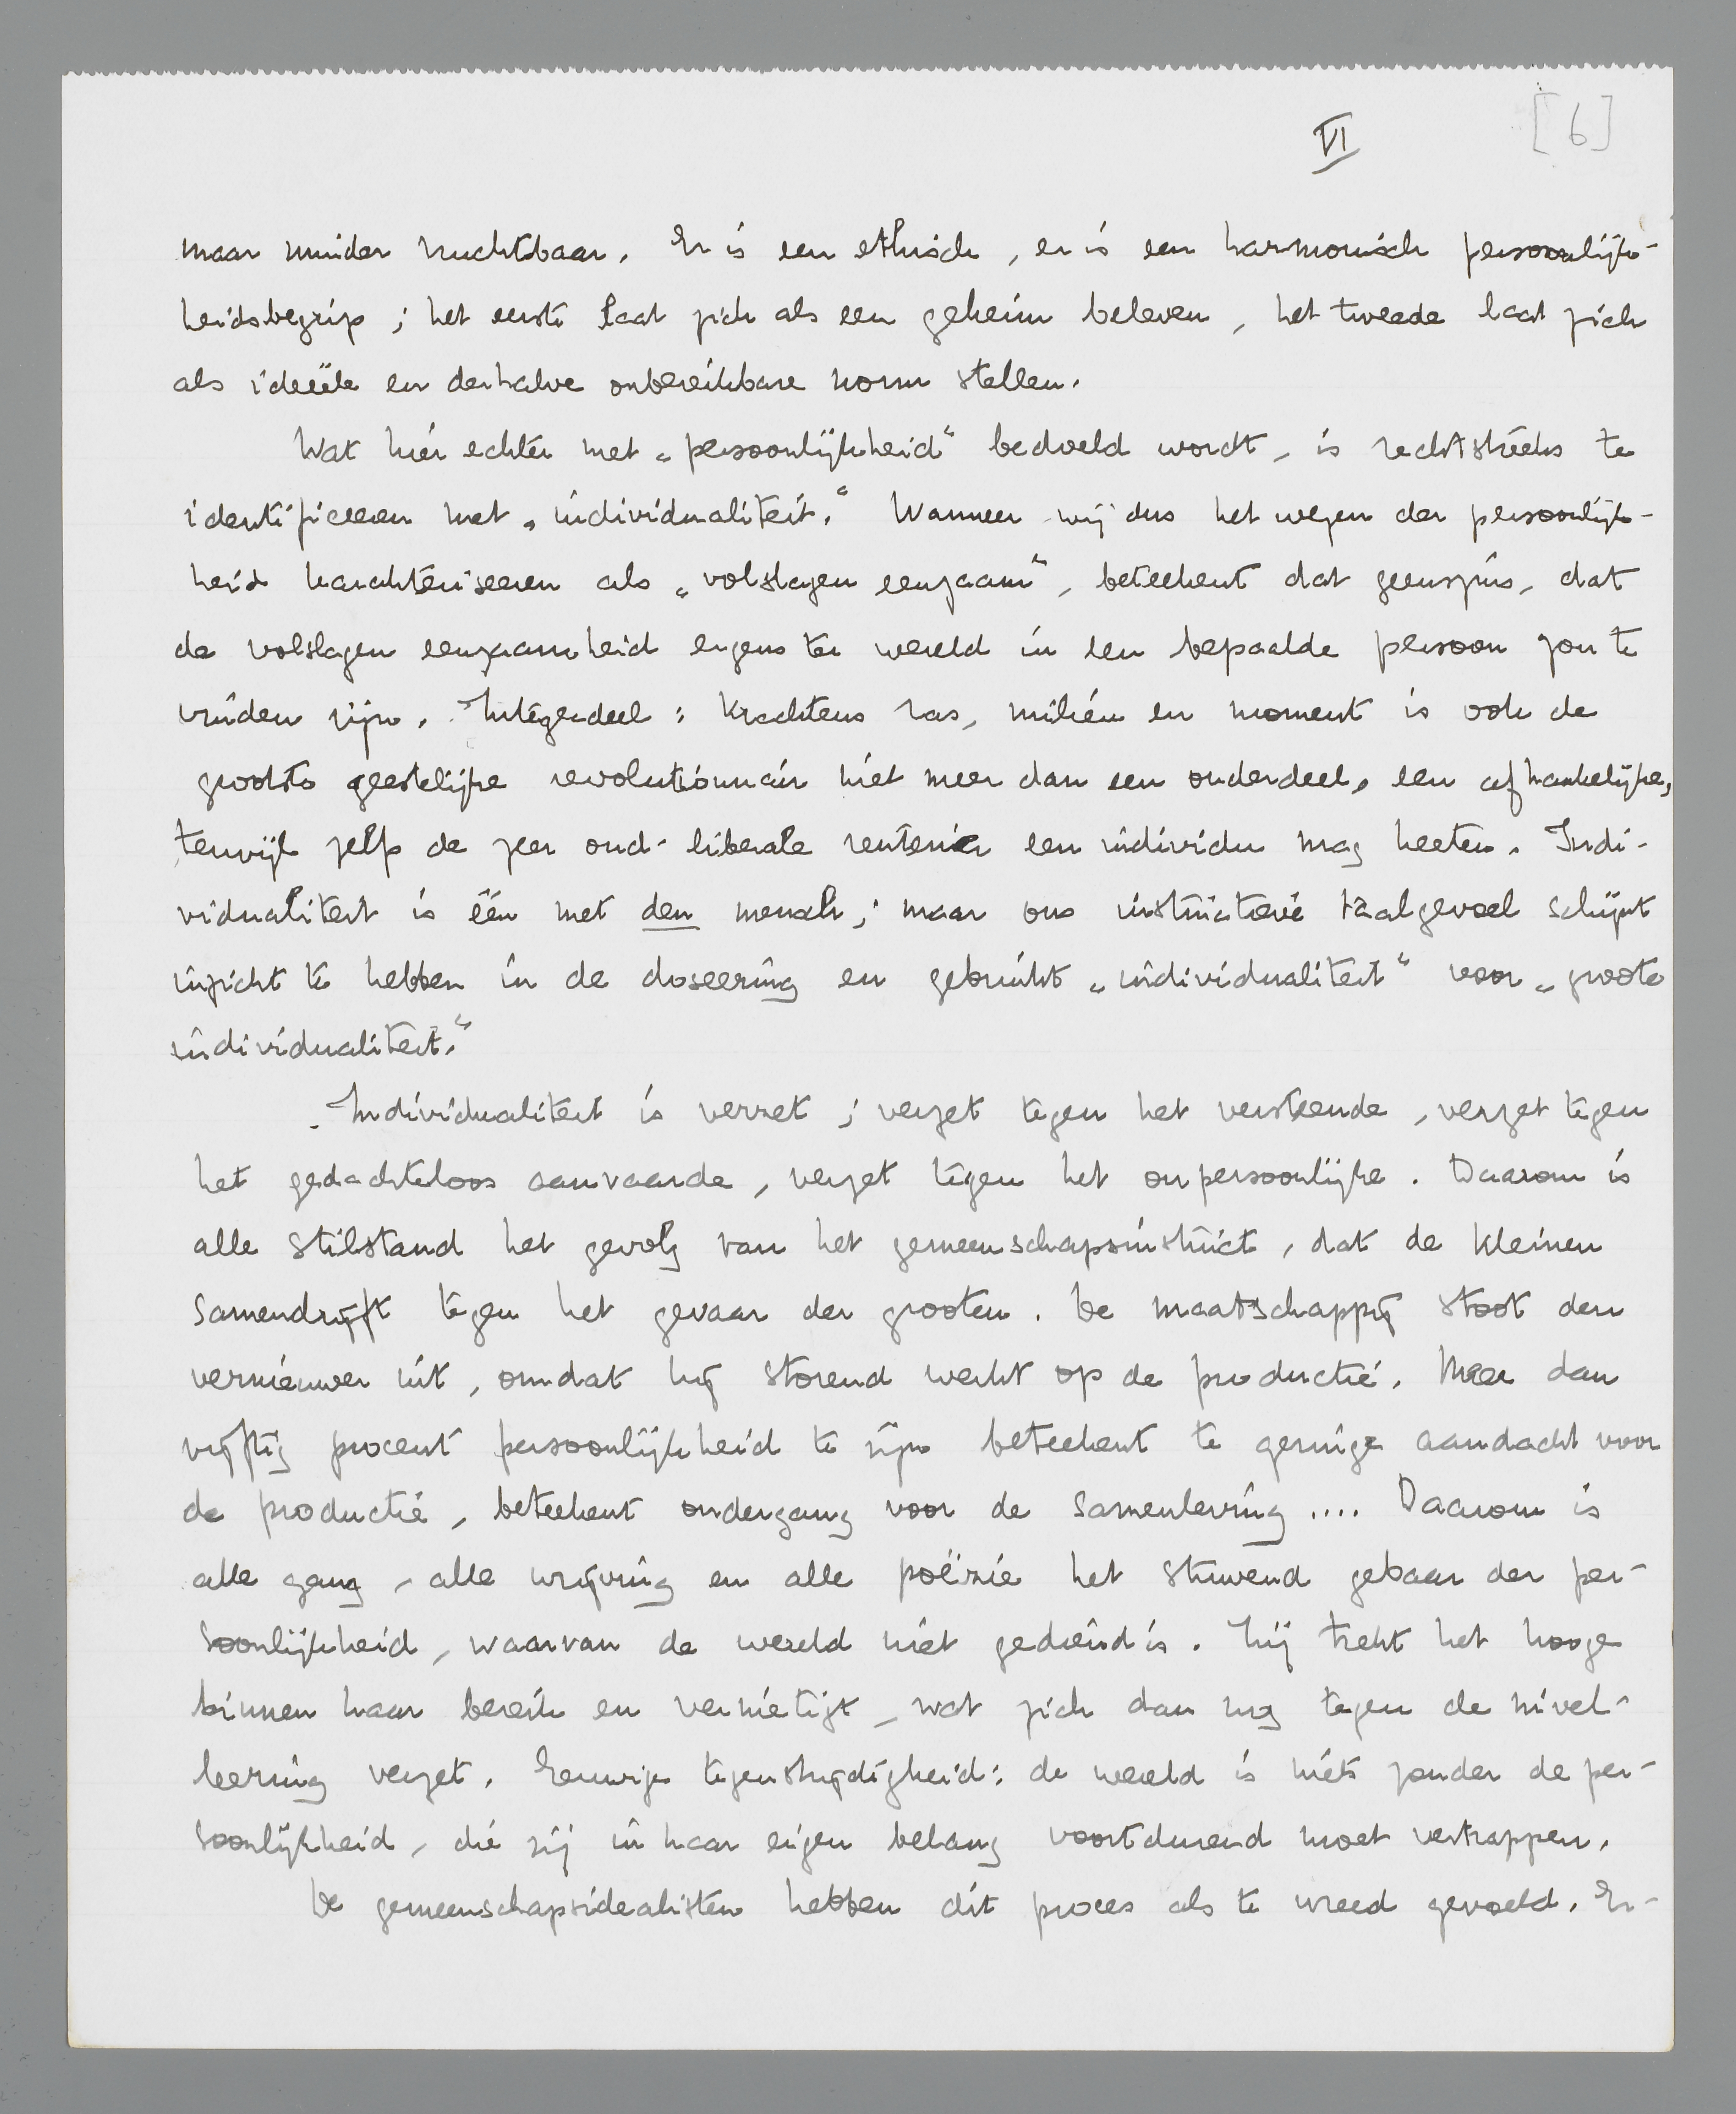 VI
[6]
maar minder vruchtbaar. Er is een ethisch, er is een harmonisch persoonlijk-
heidsbegrip; het eerste laat zich als een geheim beleven, het tweede laat zich
als ideëele en derhalve onbereikbare norm stellen.
Wat hier echter met „persoonlijkheid" bedoeld wordt, is rechtstreeks te
identificeeren met „individualiteit." Wanneer wij dus het wezen der persoonlijk-
heid karakteriseeren als „volslagen eenzaam", beteekent dat geenszins, dat
de volslagen eenzaamheid ergens ter wereld in een bepaalde persoon zou te
vinden zijn. Integendeel: krachtens ras, milieu en moment is ook de
grootste geestelijke revolutionnair niet meer dan een onderdeel, een afhankelijke,
terwijl zelfs de zeer oud-liberale rentenier een individu mag heeten. Indi-
vidualiteit is één met den mensch; maar ons instinctieve taalgevoel schijnt
inzicht te hebben in de doseering en gebruikt „individualiteit" voor „groote
individualiteit."
Individualiteit is verzet; verzet tegen het versteende, verzet tegen
het gedachteloos aanvaarde, verzet tegen het onpersoonlijke. Daarom is
alle stilstand het gevolg van het gemeenschapsinstinct, dat de kleinen
samendrijft tegen het gevaar der grooten. De maatschappij stoot den
vernieuwer uit, omdat hij storend werkt op de productie. Meer dan
vijftig procent persoonlijkheid te zijn beteekent te geringe aandacht voor
de productie, beteekent ondergang voor de samenleving .... Daarom is
alle gang, alle wrijving en alle poëzie het stuwend gebaar der per-
soonlijkheid, waarvan de wereld niet gediend is. Zij trekt het hooge
binnen haar bereik en vernietigt, wat zich dan nog tegen de nivel-
leering verzet. Eeuwige tegenstrijdigheid: de wereld is niets zonder de per-
soonlijkheid, die zij in haar eigen belang voortdurend moet vertrappen.
De gemeenschapsidealisten hebben dit proces als te wreed gevoeld. Er-